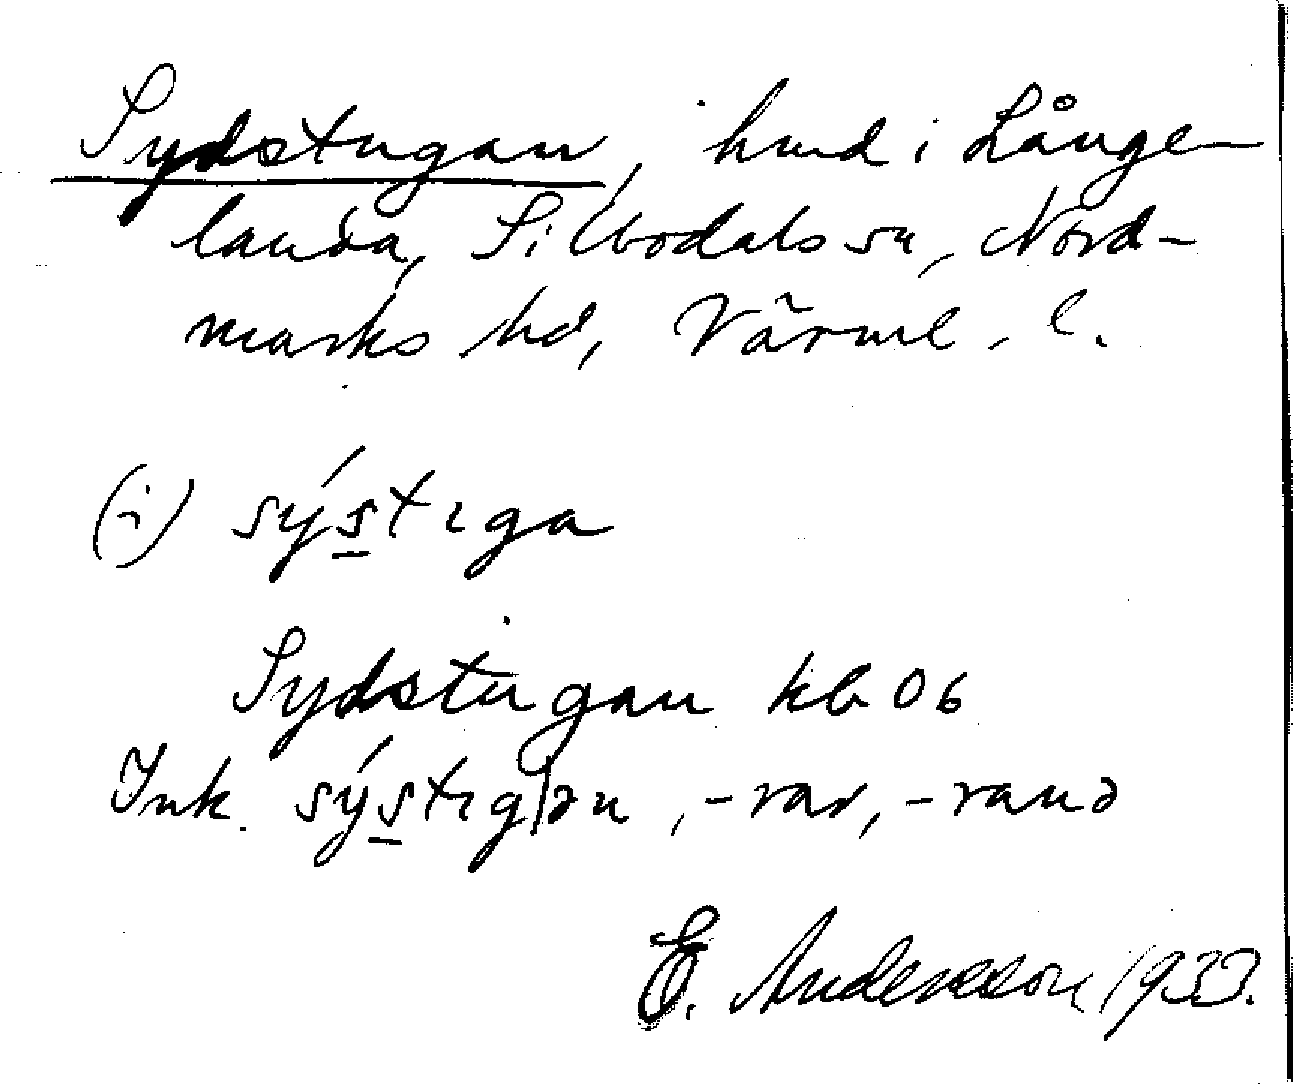 Sydstugan, hmd i Långe-
landa, Sillbodals sn, Nord-
marks hd, Värml. l.
(i) sýs̲tıga
Sydstugan kb 06
Ink. sýs̲tıg|ən, -rar, -ranə
E. Andersson 1933.